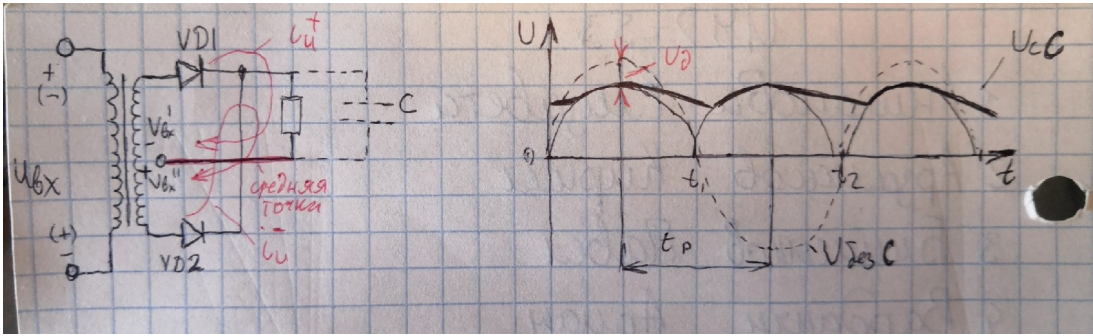 VD1
i_и^+
+
(-)
Uвх
Uвх'
-
+
Uвх"
C
средняя
точка
(+)
-
VD2
i_и^-
U
Uд
Uс C
0
t₁
t₂
t
tр
U без C